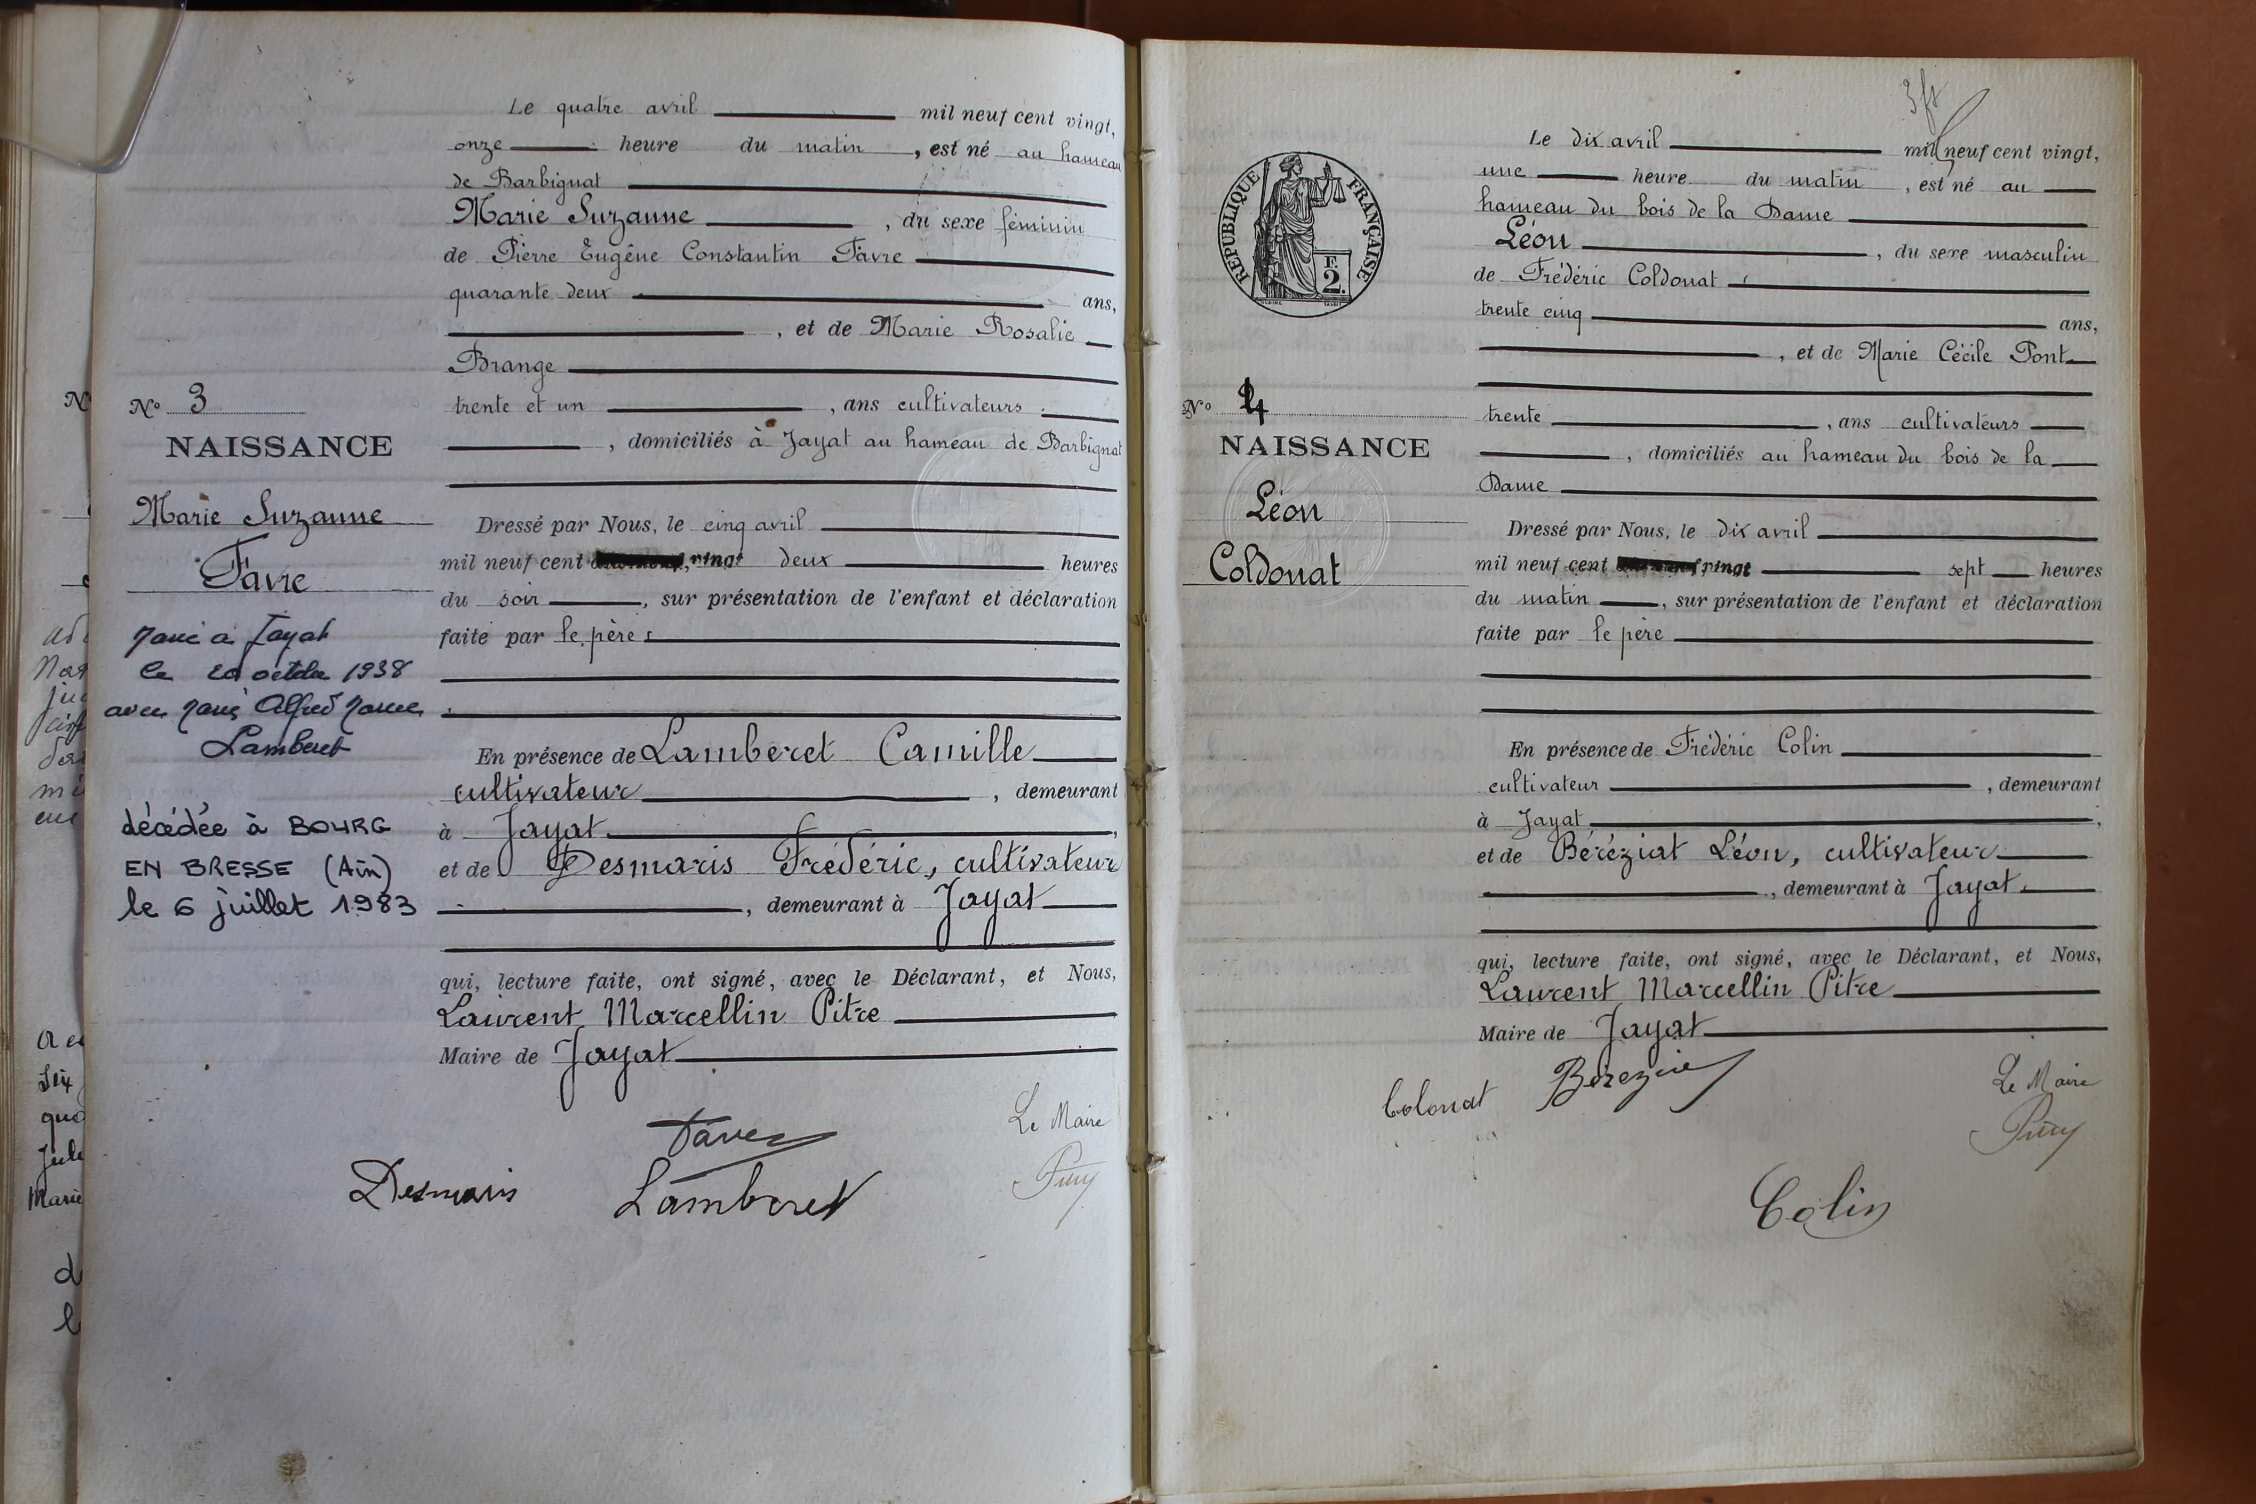 Le quatre avril mil neuf cent vingt,
onze heure du matin, est né au hameau
de Barbignat
Marie Suzanne, du sexe féminin
de Pierre Eugêne Constantin Favre
quarante deux ans,
, et de Marie Rosalie
Brange
trente et un, ans cultivateurs
, domiciliés à Jayat au hameau de Barbignat
N° 3
NAISSANCE
Marie Suzanne
Favre
à Jayat
le 20 octobre 1938
avec Alfred
Lamberet
décédée à BOURG
EN BRESSE (Ain)
le 6 juillet 1983
Dressé par Nous, le cinq avril
mil neuf cent vingt deux heures
du soir, sur présentation de l'enfant et déclaration
faite par le père
En présence de Lamberet Camille
cultivateur, demeurant
à Jayat,
et de Desmaris Frédéric, cultivateur
, demeurant à Jayat
qui, lecture faite, ont signé, avec le Déclarant, et Nous,
Laurent Marcellin Pitre
Maire de Jayat
Favre
Le Maire
Desmaris
Lamberet
RÉPUBLIQUE FRANÇAISE
F.
2.
Le dix avril mil neuf cent vingt,
une heure du matin, est né au
hameau du bois de la Dame
Léon, du sexe masculin
de Frédéric Coldonat
trente cinq ans,
, et de Marie Cécile Pont
trente, ans cultivateurs
, domiciliés au hameau du bois de la
Dame
N° 4
NAISSANCE
Léon
Coldonat
Dressé par Nous, le dix avril
mil neuf cent vingt sept heures
du matin, sur présentation de l'enfant et déclaration
faite par le père
En présence de Frédéric Colin
cultivateur, demeurant
à Jayat,
et de Béréziat Léon, cultivateur
, demeurant à Jayat.
qui, lecture faite, ont signé, avec le Déclarant, et Nous,
Laurent Marcellin Pitre
Maire de Jayat
Colonat
Le Maire
Colin